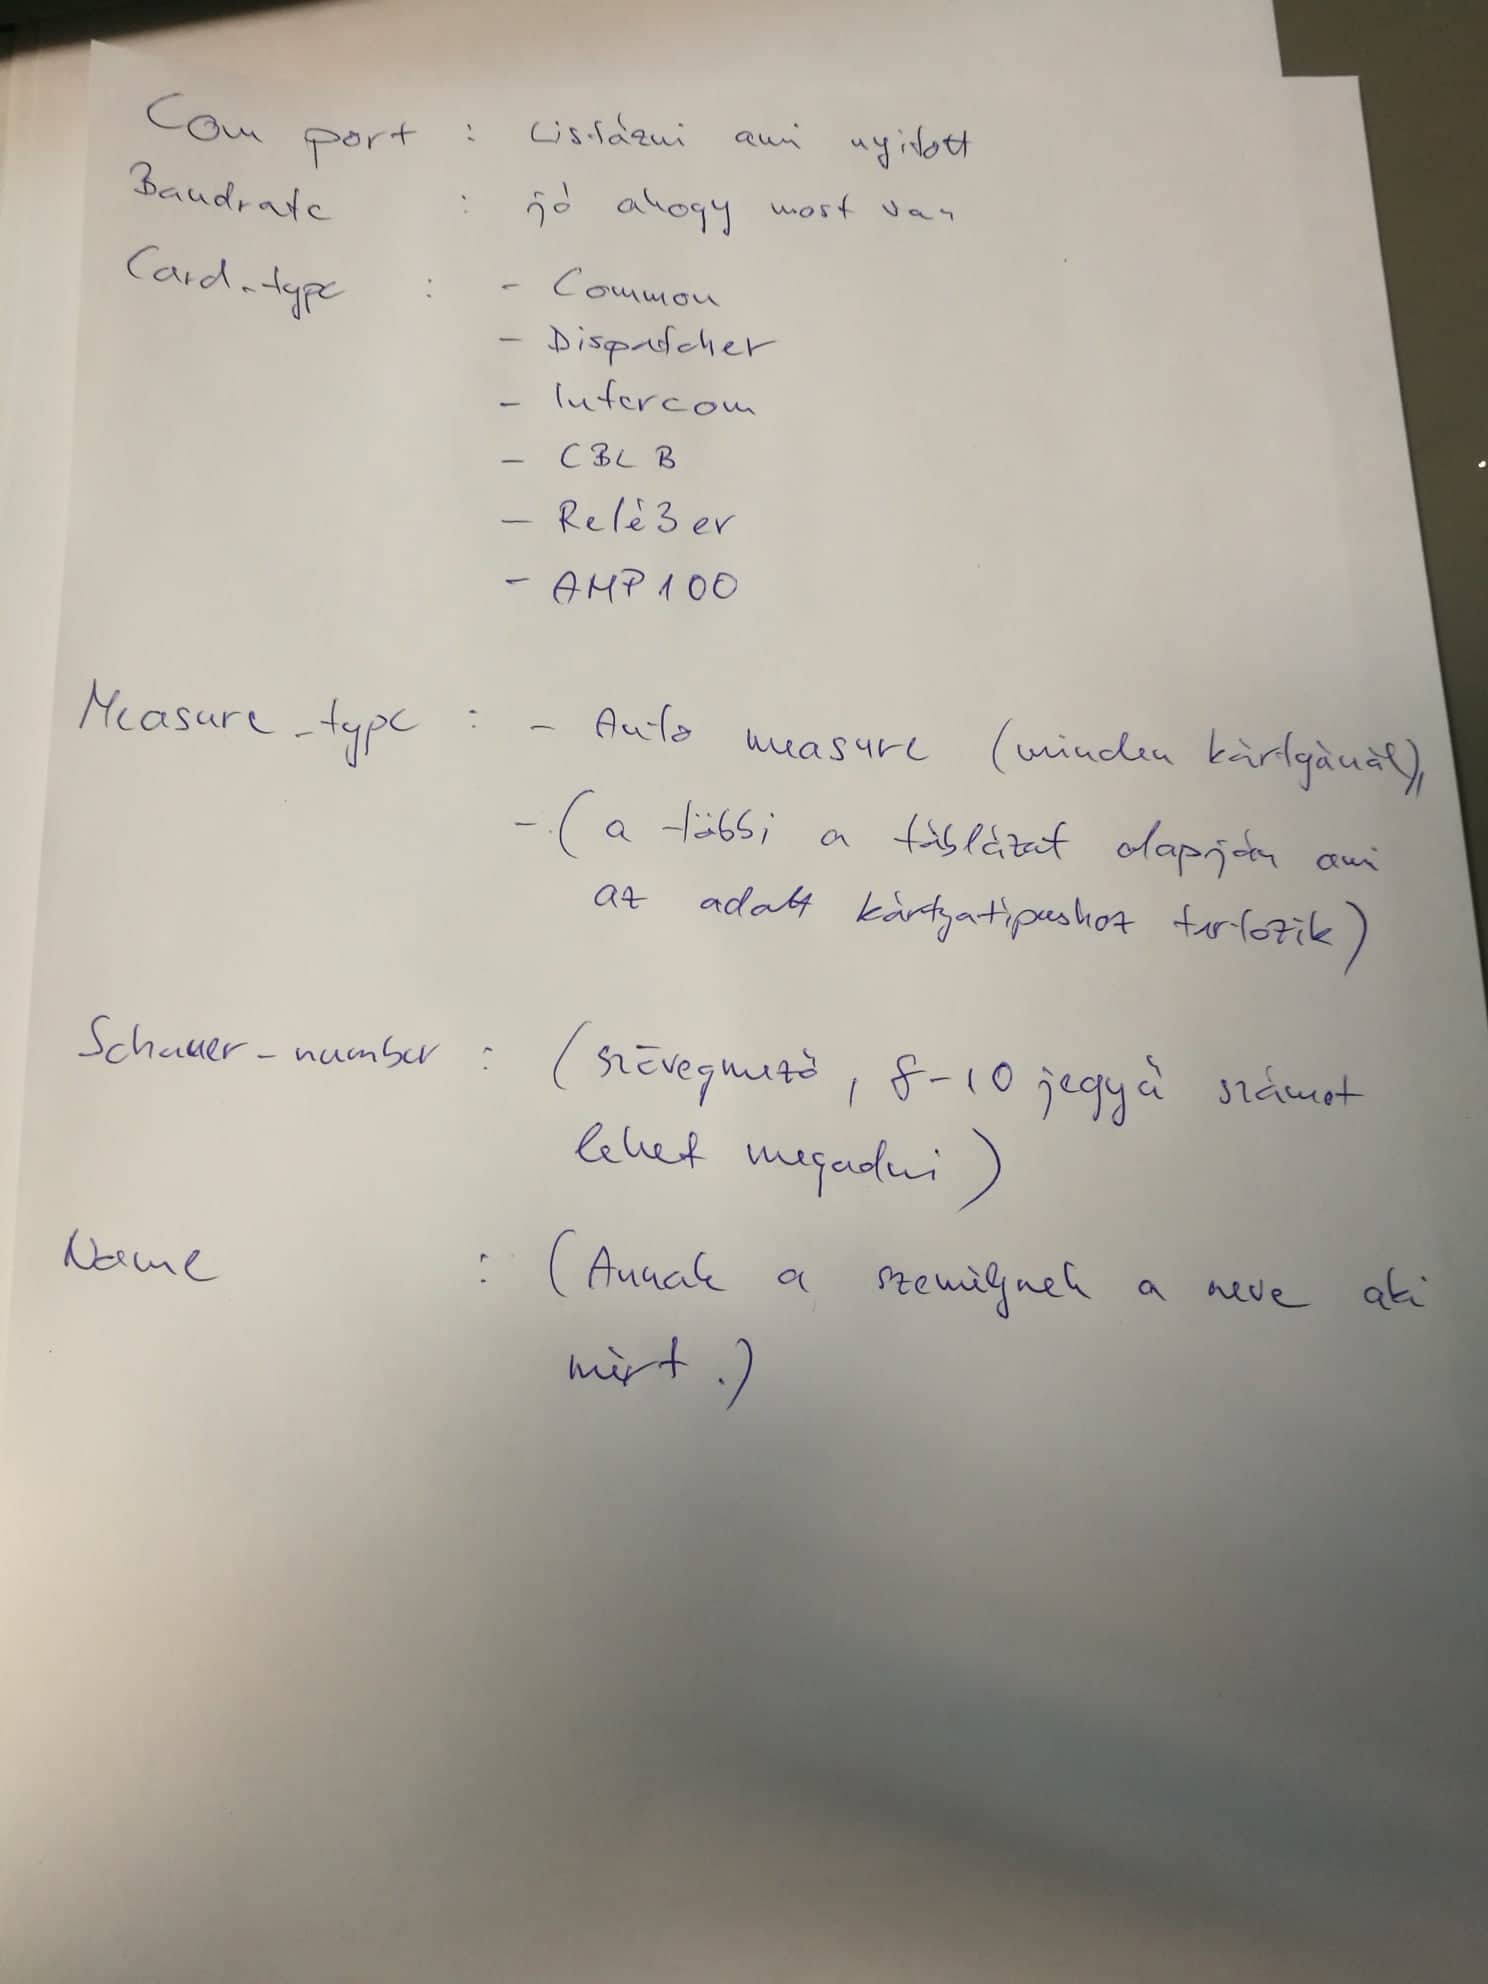 Com port : Listázni ami nyitott
Baudrate : jó ahogy most van
Card_type : - Common
- Dispatcher
- Intercom
- CBLB
- Relé3er
- AMP100
Measure_type : - Auto measure (minden kártyánál),
- (a többi a táblázat alapján ami
az adott kártyatipushoz tartozik)
Schauer-number : (szövegmező, 8-10 jegyű számot
lehet megadni)
Name : (Annak a személynek a neve aki
mért.)